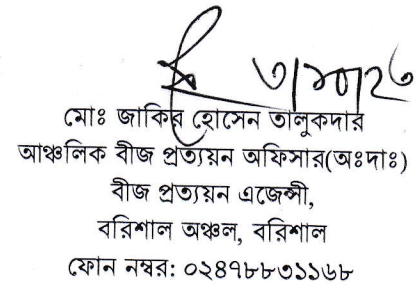 ৩/১০/২৩
মোঃ জাকির হোসেন তালুকদার
আঞ্চলিক বীজ প্রত্যয়ন অফিসার(অঃদাঃ)
বীজ প্রত্যয়ন এজেন্সী,
বরিশাল অঞ্চল, বরিশাল
ফোন নম্বর: ০২৪৭৮৮৩১১৬৮